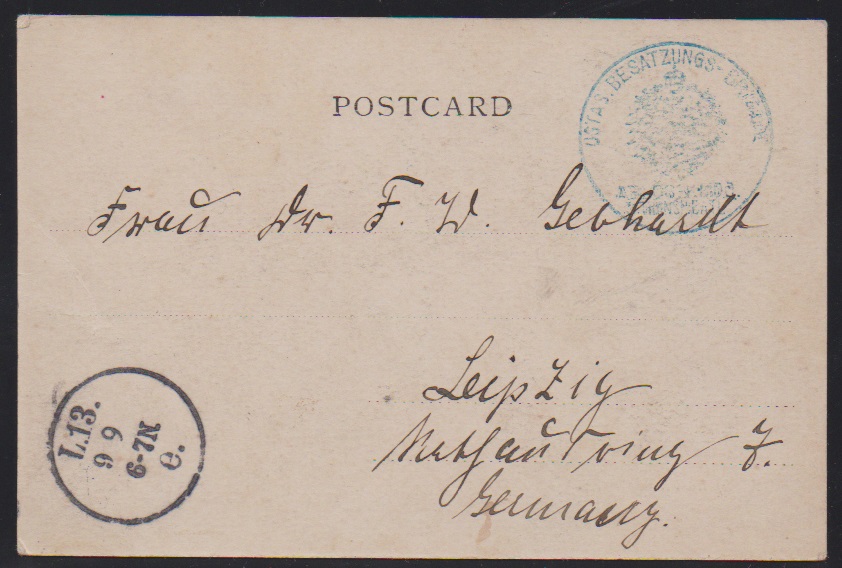 POSTCARD
OSTAS. BESATZUNGS-BRIGADE
Frau Dr. F. W. Gebhardt
Leipzig
Rathausring 7.
Germany.
L.13.
9 9
6-7N
e.